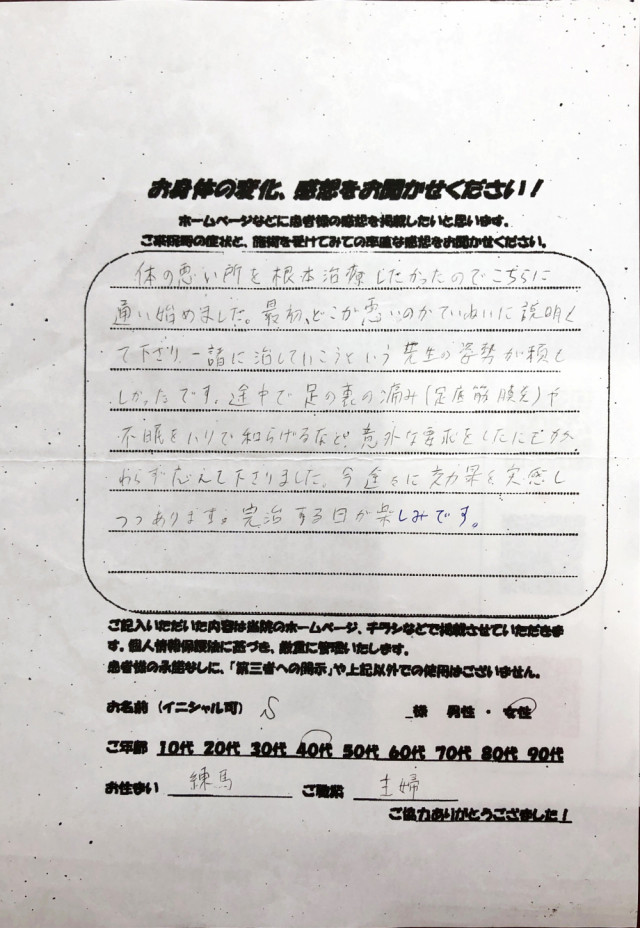 お身体の変化、感想をお聞かせください！
ホームページなどに患者様の感想を掲載したいと思います。
ご来院時の症状と、施術を受けてみての率直な感想をお聞かせください。
体の悪い所を根本治療したかったのでこちらに
通い始めました。最初、どこが悪いのかていねいに説明し
て下さり、一諸に治していこうという先生の姿勢が頼も
しかったです。途中で足の裏の痛み(足底筋膜炎)や
不眠をハリで和らげるなど、意外な要求をしたにもかか
わらず応えて下さりました。今途々に効果を実感し
つつあります。完治する日が楽しみです。
ご記入いただいた内容は当院のホームページ、チラシなどで掲載させていただきま
す。個人情報保護法に基づき、厳重に管理いたします。
患者様の承諾なしに、「第三者への開示」や上記以外での使用はございません。
お名前（イニシャル可） S 様 男性・女性
ご年齢 10代 20代 30代 40代 50代 60代 70代 80代 90代
お住まい 練馬 ご職業 主婦
ご協力ありがとうございました！